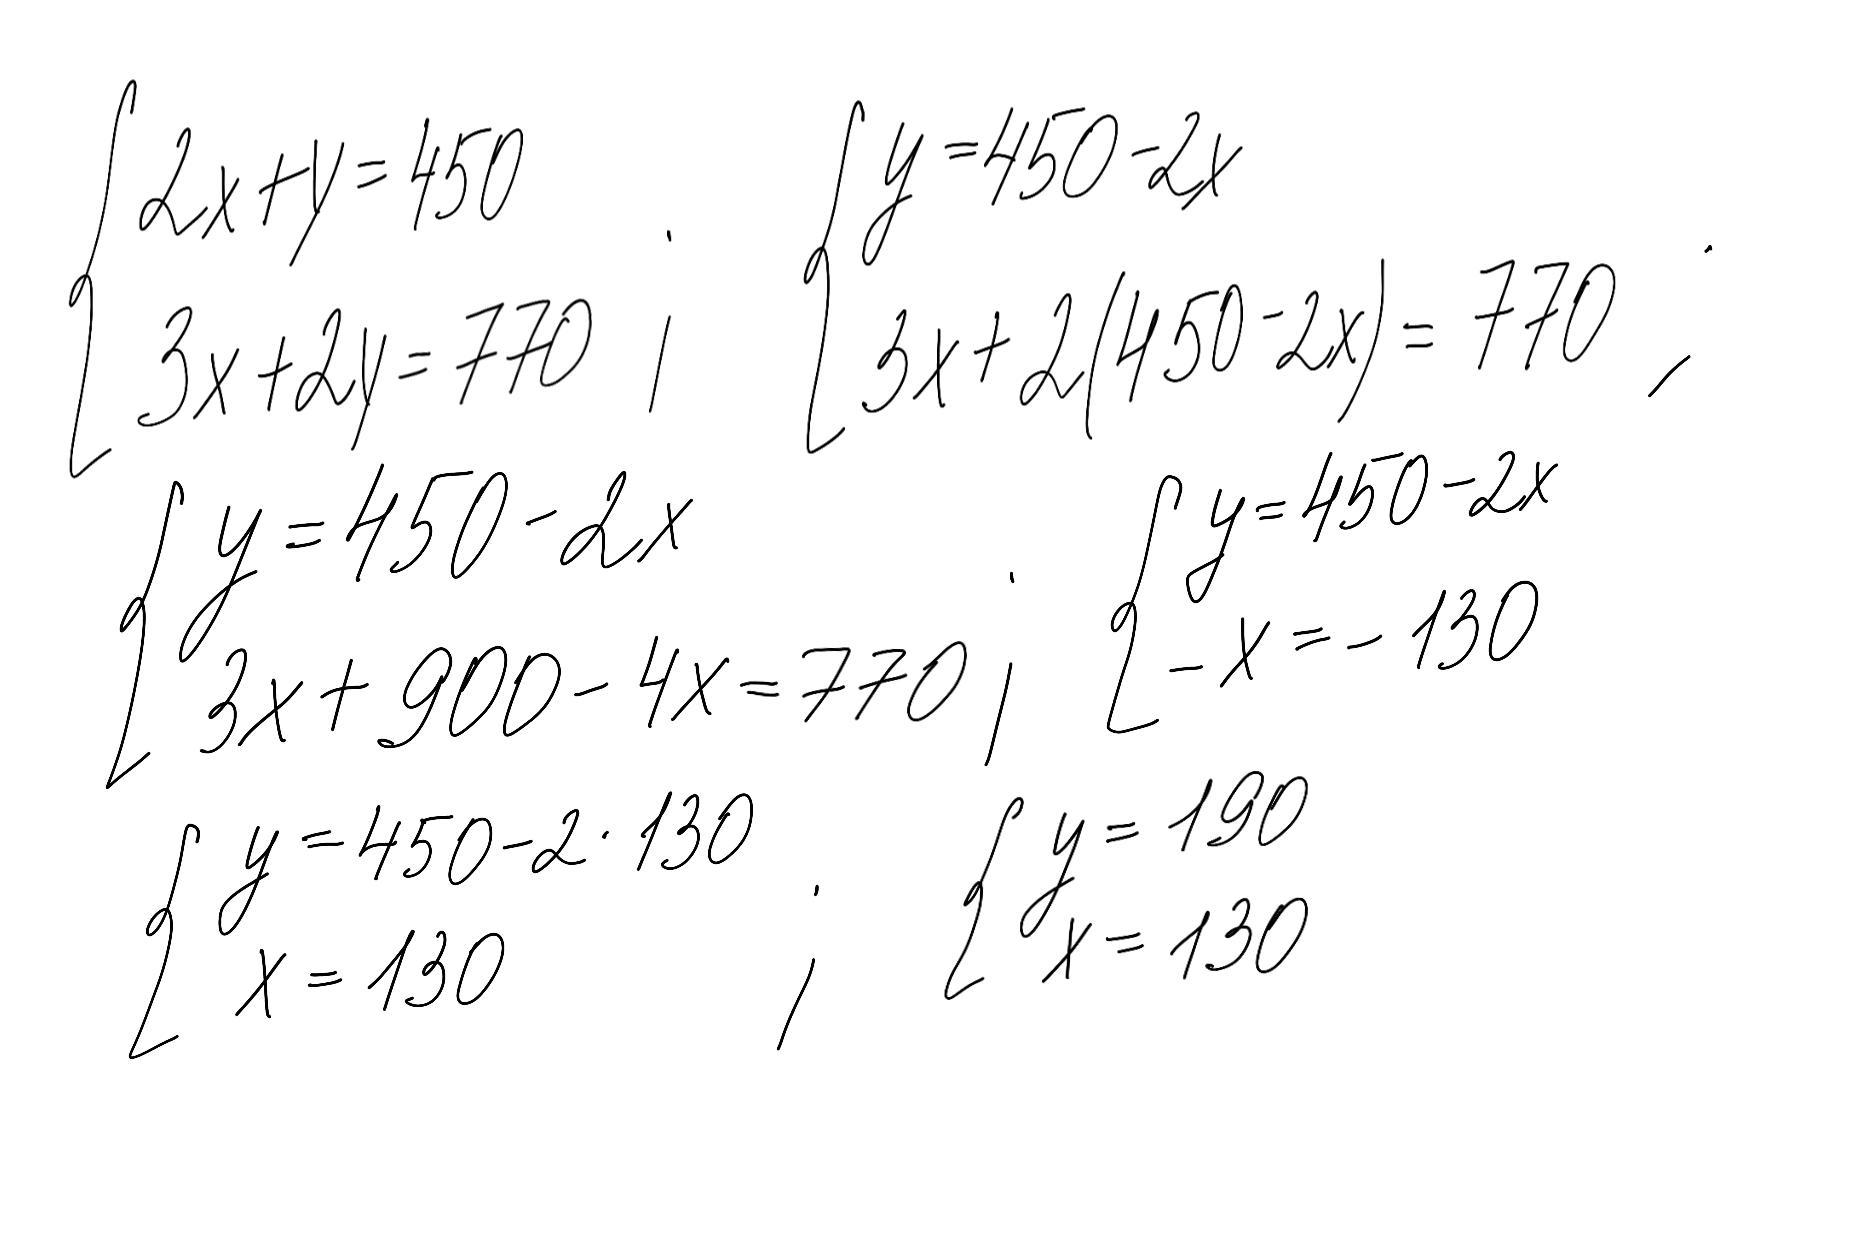 { 2x+y=450
3x+2y=770 ;
{ y=450-2x
3x+2(450-2x)=770 ;
{ y=450-2x
3x+900-4x=770 ;
{ y=450-2x
-x=-130
{ y=450-2·130
x=130 ;
{ y=190
x=130